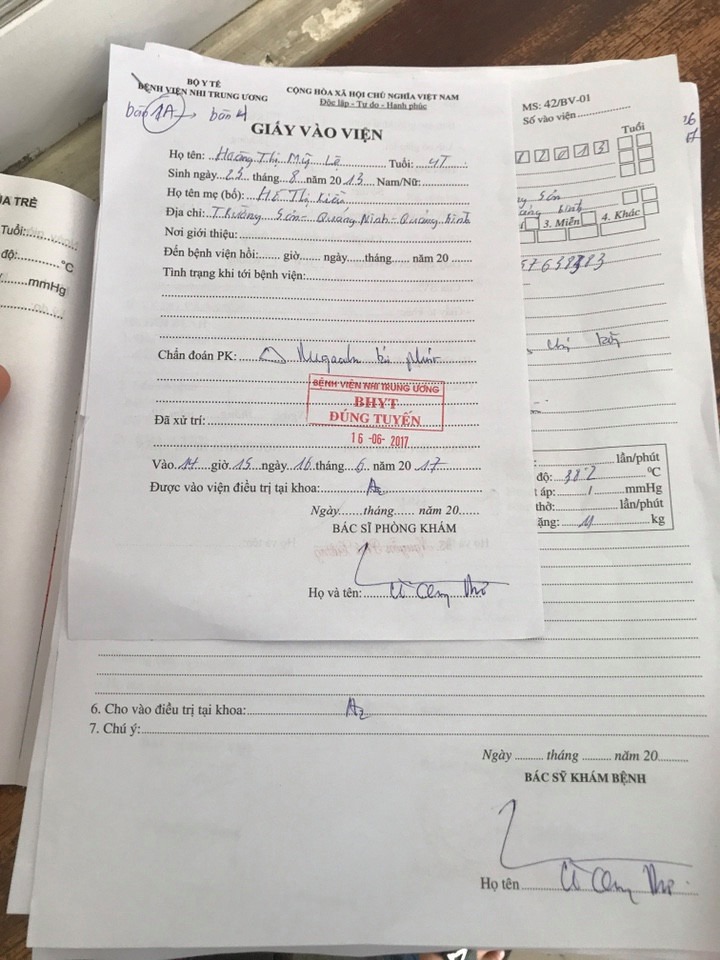 BỘ Y TẾ
BỆNH VIỆN NHI TRUNG ƯƠNG
CỘNG HÒA XÃ HỘI CHỦ NGHĨA VIỆT NAM
Độc lập - Tự do - Hạnh phúc
bàn 1A → bàn 4
GIẤY VÀO VIỆN
Họ tên: Hoàng Thị Mỹ Lệ Tuổi: 4T
Sinh ngày 25 tháng 8 năm 2013 Nam/Nữ:
Họ tên mẹ (bố): Hồ Thị Kiều
Địa chỉ: Trường Sơn - Quảng Ninh - Quảng Bình
Nơi giới thiệu:
Đến bệnh viện hồi: giờ ngày tháng năm 20
Tình trạng khi tới bệnh viện:
Chẩn đoán PK:
BỆNH VIỆN NHI TRUNG ƯƠNG
BHYT
ĐÚNG TUYẾN
16-06-2017
Đã xử trí:
Vào 14 giờ 15 ngày 16 tháng 6 năm 2017
Được vào viện điều trị tại khoa: A2
Ngày tháng năm 20
BÁC SĨ PHÒNG KHÁM
Họ và tên:
MS: 42/BV-01
Số vào viện
Tuổi
2 2 0 1 3
Sơn
3. Miễn 4. Khác
lần/phút
độ: 38 2 °C
áp: / mmHg
thở: lần/phút
ặng: 11 kg
6. Cho vào điều trị tại khoa: A2
7. Chú ý:
Ngày tháng năm 20
BÁC SỸ KHÁM BỆNH
Họ tên
A TRẺ
Tuổi:
độ: °C
mmHg